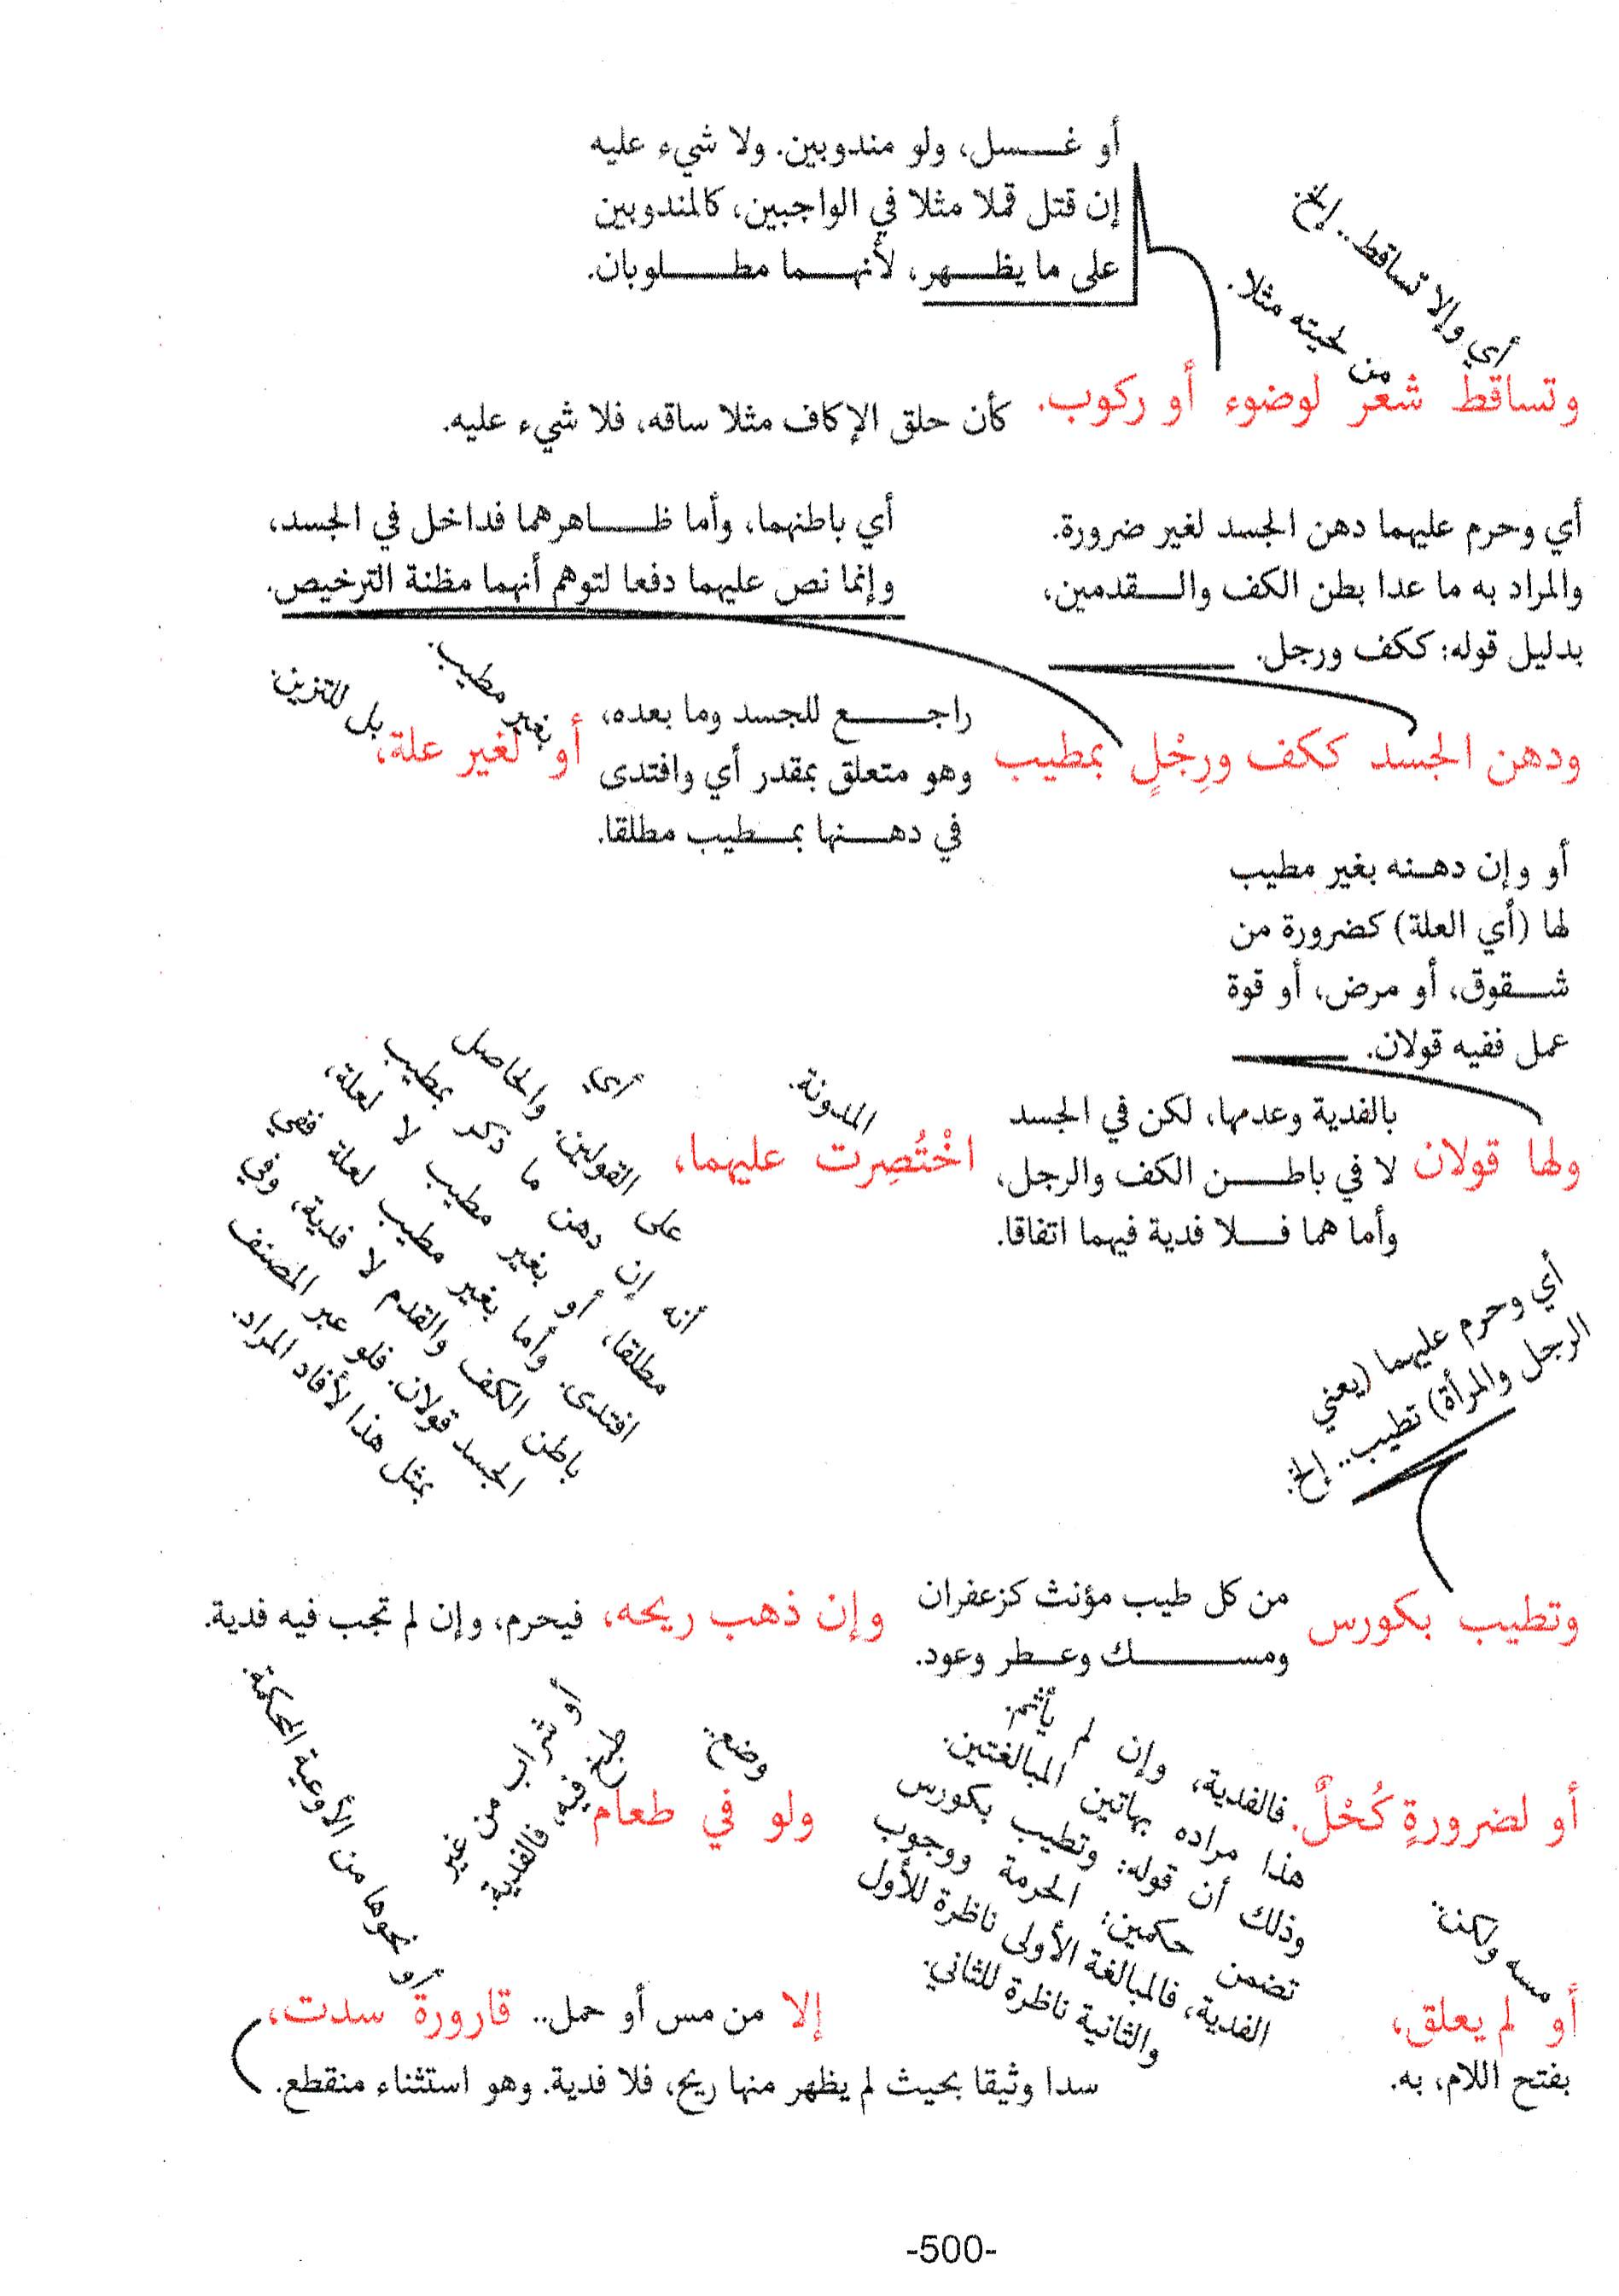 أو غسل، ولو مندوبين. ولا شيء عليه
إن قتل قملا مثلا في الواجبين، كالمندوبين
على ما يظهر، لأنهما مطلوبان.
أي وإلا تساقط.. إلخ
من لحيته مثلا.
وتساقط شعر لوضوء أو ركوب. كأن حلق الإكاف مثلا ساقه، فلا شيء عليه.
أي وحرم عليهما دهن الجسد لغير ضرورة.
والمراد به ما عدا بطن الكف والقدمين،
بدليل قوله: ككف ورجل.
أي باطنهما، وأما ظاهرهما فداخل في الجسد،
وإنما نص عليهما دفعا لتوهم أنهما مظنة الترخيص.
ودهن الجسد ككف ورِجْلٍ بمطيب
راجع للجسد وما بعده،
وهو متعلق بمقدر أي وافتدى
في دهنها بمطيب مطلقا.
أو
بغير مطيب.
لغير علة،
بل للتزين.
أو وإن دهنه بغير مطيب
لها (أي العلة) كضرورة من
شقوق، أو مرض، أو قوة
عمل ففيه قولان.
ولها قولان
بالفدية وعدمها، لكن في الجسد
لا في باطن الكف والرجل،
وأما هما فلا فدية فيهما اتفاقا.
اخْتُصِرت
المدونة.
عليهما،
أي
على القولين. والحاصل
أنه إن دهن ما ذكر بمطيب
مطلقا، أو بغير مطيب لا لعلة،
افتدى. وأما بغير مطيب لعلة ففي
باطن الكف والقدم لا فدية، وفي
الجسد قولان. فلو عبر المصنف
بمثل هذا لأفاد المراد.
أي وحرم عليهما (يعني
الرجل والمرأة) تطيب.. إلخ.
وتطيب بكورس
من كل طيب مؤنث كزعفران
ومسك وعطر وعود.
وإن ذهب ريحه، فيحرم، وإن لم تجب فيه فدية.
أو لضرورةٍ كُحْلٌ.
فالفدية، وإن لم يأثم.
هذا مراده بهاتين المبالغتين.
وذلك أن قوله: وتطيب بكورس
تضمن حكمين: الحرمة ووجوب
الفدية، فالمبالغة الأولى ناظرة للأول
والثانية ناظرة للثاني.
ولو
وضع.
في طعام
أو شراب من غير
طبخ فيه، فالفدية.
أو
مسه ولكن.
لم يعلق،
بفتح اللام، به.
إلا من مس أو حمل.. قارورة سدت،
أو نحوها من الأوعية المحكمة.
سدا وثيقا بحيث لم يظهر منها ريح، فلا فدية. وهو استثناء منقطع.
-500-